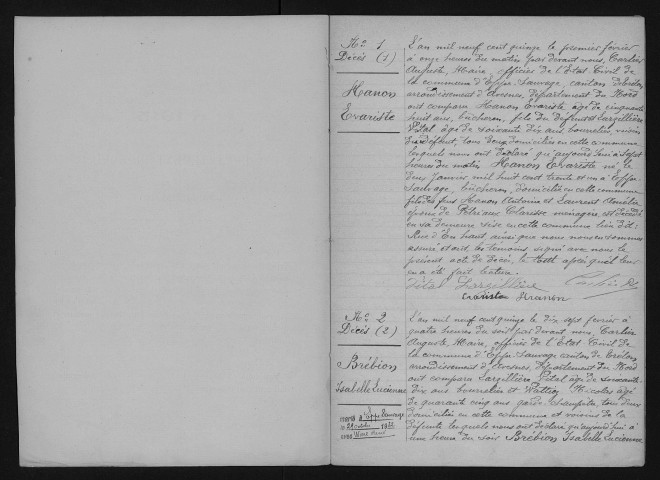 No 1
Décès (1)
Hanon
Evariste
L'an mil neuf cent quinze le premier février
à onze heures du matin par devant nous, Carlier
Auguste, Maire, officier de l'Etat Civil de
la commune d'Eppe-Sauvage, canton de Trélon
arrondissement d'Avesnes, Département du Nord
ont comparu Hanon Evariste âgé de cinquante
huit ans, bûcheron, fils du défunt & Largillière
Vital âgé de soixante dix ans, bourrelier, voisin
du défunt, tous deux domiciliés en cette commune
lesquels nous ont déclaré qu'aujourd'hui à sept
heures du matin Hanon Evariste né le
deux Janvier mil huit cent trente et un à Eppe-
Sauvage, bûcheron, domicilié en cette commune
fils des feus Hanon Antoine et Laurent Amélie
époux de Clarisse ménagère est décédé
en sa demeure sise en cette commune lieu dit:
Rue d'En haut, ainsi que nous nous en sommes
assuré et ont, les témoins signé avec nous le
présent acte de décès, le tout après qu'il leur
en a été fait lecture.
Vital Largillière Carlier A
Evariste Hanon
No 2
Décès (2)
Brébion
Isabelle Lucienne
à Eppe Sauvage
L'an mil neuf cent quinze le dix sept février à
quatre heures du soir par devant nous Carlier
Auguste, Maire, officier de l'Etat Civil de
la commune d'Eppe-Sauvage canton de Trélon
arrondissement d'Avesnes, Département du Nord
ont comparu Largillière Vital âgé de soixante
dix ans bourrelier et Nicolas âgé
de quarante cinq ans garde-champêtre, tous deux
domiciliés en cette commune et voisins de la
défunte lesquels nous ont déclaré qu'aujourd'hui à
une heure du soir Brébion Isabelle Lucienne